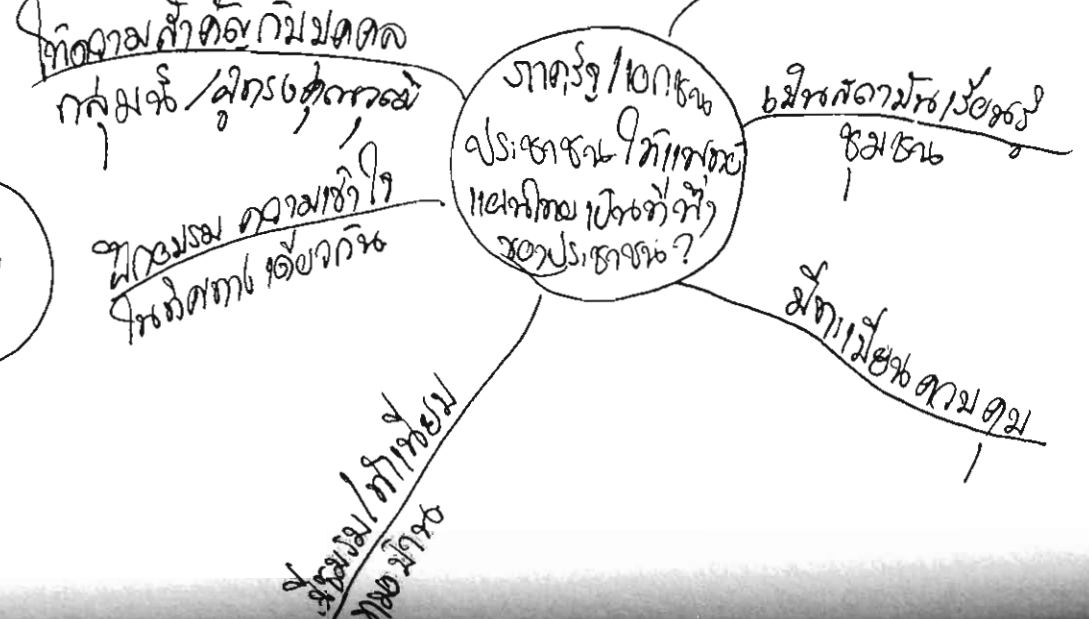 ให้ความสำคัญกับบุคคล
กลุ่มนี้ / ผู้ทรงคุณวุฒิ
ฝึกอบรม ความเข้าใจ
ในทิศทางเดียวกัน
ภาครัฐ / เอกชน
ประชาชน ให้แพทย์
แผนไทย เป็นที่พึ่ง
ของประชาชน ?
เป็นสถาบัน เรียนรู้
ชุมชน
มีทะเบียน ควบคุม
มีชมรม / ทำเนียบ
หมอบ้าน